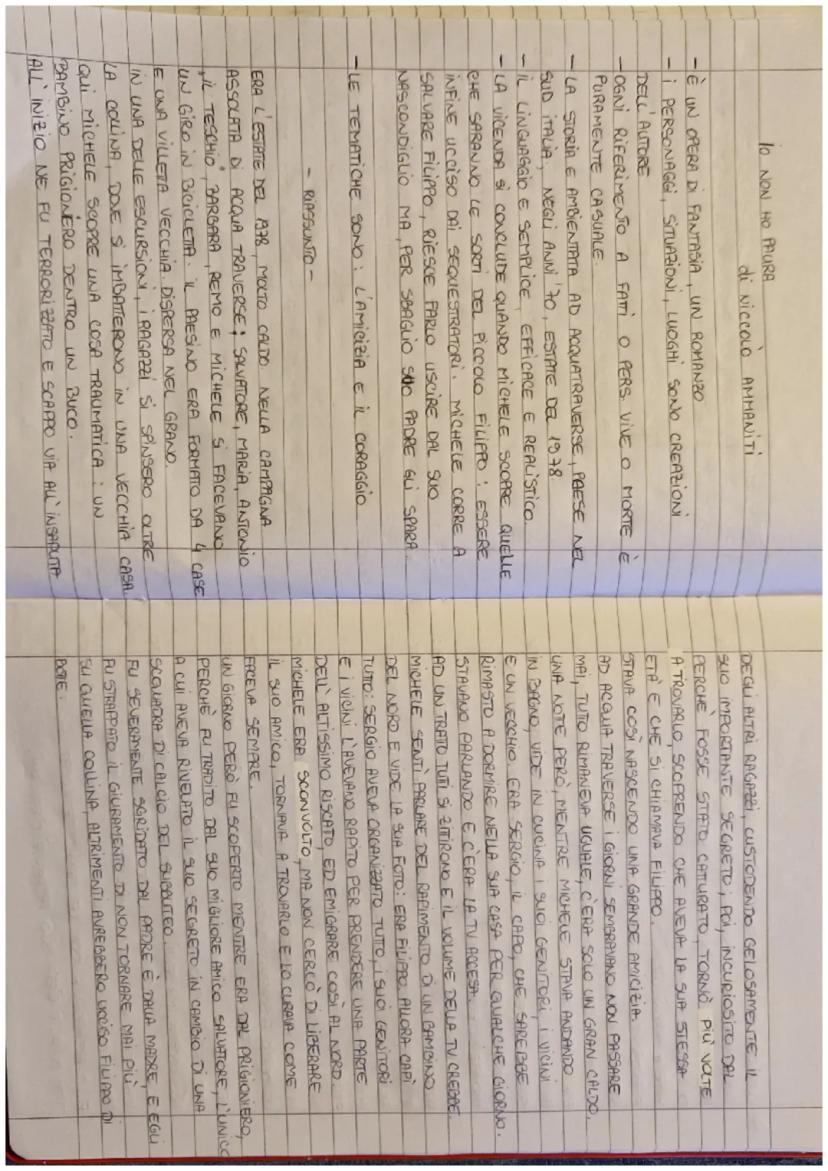 IO NON HO PAURA
di NICCOLÒ AMMANITI
- È UN OPERA DI FANTASIA, UN ROMANZO
- I PERSONAGGI, SITUAZIONI, LUOGHI SONO CREAZIONI
DELL'AUTORE
- OGNI RIFERIMENTO A FATTI O PERS. VIVE O MORTE È
PURAMENTE CASUALE.
- LA STORIA È AMBIENTATA AD ACQUATRAVERSE, PAESE NEL
SUD ITALIA, NEGLI ANNI '70, ESTATE DEL 1978
- IL LINGUAGGIO È SEMPLICE, EFFICACE E REALISTICO.
- LA VICENDA SI CONCLUDE QUANDO MICHELE SCOPRE QUELLE
CHE SARANNO LE SORTI DEL PICCOLO FILIPPO: ESSERE
INFINE UCCISO DAI SEQUESTRATORI. MICHELE CORRE A
SALVARE FILIPPO, RIESCE FARLO USCIRE DAL SUO
NASCONDIGLIO MA, PER SBAGLIO SUO PADRE GLI SPARA.
- LE TEMATICHE SONO: L'AMICIZIA E IL CORAGGIO
- RIASSUNTO -
ERA L'ESTATE DEL 1978, MOLTO CALDO NELLA CAMPAGNA
ASSOLATA DI ACQUA TRAVERSE; SALVATORE, MARIA, ANTONIO
"IL TESCHIO", BARBARA, REMO E MICHELE SI FACEVANO
UN GIRO IN BICICLETTA. IL PAESINO ERA FORMATO DA 4 CASE
E UNA VILLETTA VECCHIA DISPERSA NEL GRANO.
IN UNA DELLE ESCURSIONI, I RAGAZZI SI SPINSERO OLTRE
LA COLLINA, DOVE SI IMBATTERONO IN UNA VECCHIA CASA.
QUI MICHELE SCOPRE UNA COSA TRAUMATICA: UN
BAMBINO PRIGIONIERO DENTRO UN BUCO.
ALL'INIZIO NE FU TERRORIZZATO E SCAPPÒ VIA ALL'INSAPUTA
DEGLI ALTRI RAGAZZI, CUSTODENDO GELOSAMENTE IL
SUO IMPORTANTE SEGRETO; POI, INCURIOSITO DAL
PERCHÈ FOSSE STATO CATTURATO, TORNÒ PIÙ VOLTE
A TROVARLO, SCOPRENDO CHE AVEVA LA SUA STESSA
ETÀ E CHE SI CHIAMAVA FILIPPO.
STAVA COSÌ NASCENDO UNA GRANDE AMICIZIA.
AD ACQUA TRAVERSE I GIORNI SEMBRAVANO NON PASSARE
MAI, TUTTO RIMANEVA UGUALE, C'ERA SOLO UN GRAN CALDO.
UNA NOTE PERÒ, MENTRE MICHELE STAVA ANDANDO
IN BAGNO, VIDE IN CUCINA I SUOI GENITORI, I VICINI
E UN VECCHIO. ERA SERGIO, IL CAPO, CHE SAREBBE
RIMASTO A DORMIRE NELLA SUA CASA PER QUALCHE GIORNO.
STAVANO PARLANDO E C'ERA LA TV ACCESA.
AD UN TRATO TUTI SI ZITTIRONO E IL VOLUME DELLA TV CREBBE.
MICHELE SENTÌ PARLARE DEL RAPIMENTO DI UN BAMBINO
DEL NORD E VIDE LA SUA FOTO: ERA FILIPPO. ALLORA CAPÌ
TUTTO: SERGIO AVEVA ORGANIZZATO TUTTO, I SUOI GENITORI
E I VICINI L'AVEVANO RAPITO PER PRENDERE UNA PARTE
DELL'ALTISSIMO RISCATO, ED EMIGRARE COSÌ AL NORD.
MICHELE ERA SCONVOLTO, MA NON CERCÒ DI LIBERARE
IL SUO AMICO, TORNAVA A TROVARLO E LO CURAVA COME
FACEVA SEMPRE.
UN GIORNO PERÒ FU SCOPERTO MENTRE ERA DAL PRIGIONIERO,
PERCHÈ FU TRADITO DAL SUO MIGLIORE AMICO SALVATORE, L'UNICO
A CUI AVEVA RIVELATO IL SUO SEGRETO IN CAMBIO DI UNA
SCQUADRA DI CALCIO DEL SUBBUTEO.
FU SEVERAMENTE SGRIDATO DAL PADRE E DALLA MADRE, E EGLI
FU STRAPPATO IL GIURAMENTO DI NON TORNARE MAI PIÙ
SU QUELLA COLLINA, ALTRIMENTI AVREBBERO UCCISO FILIPPO DI
BOTE.